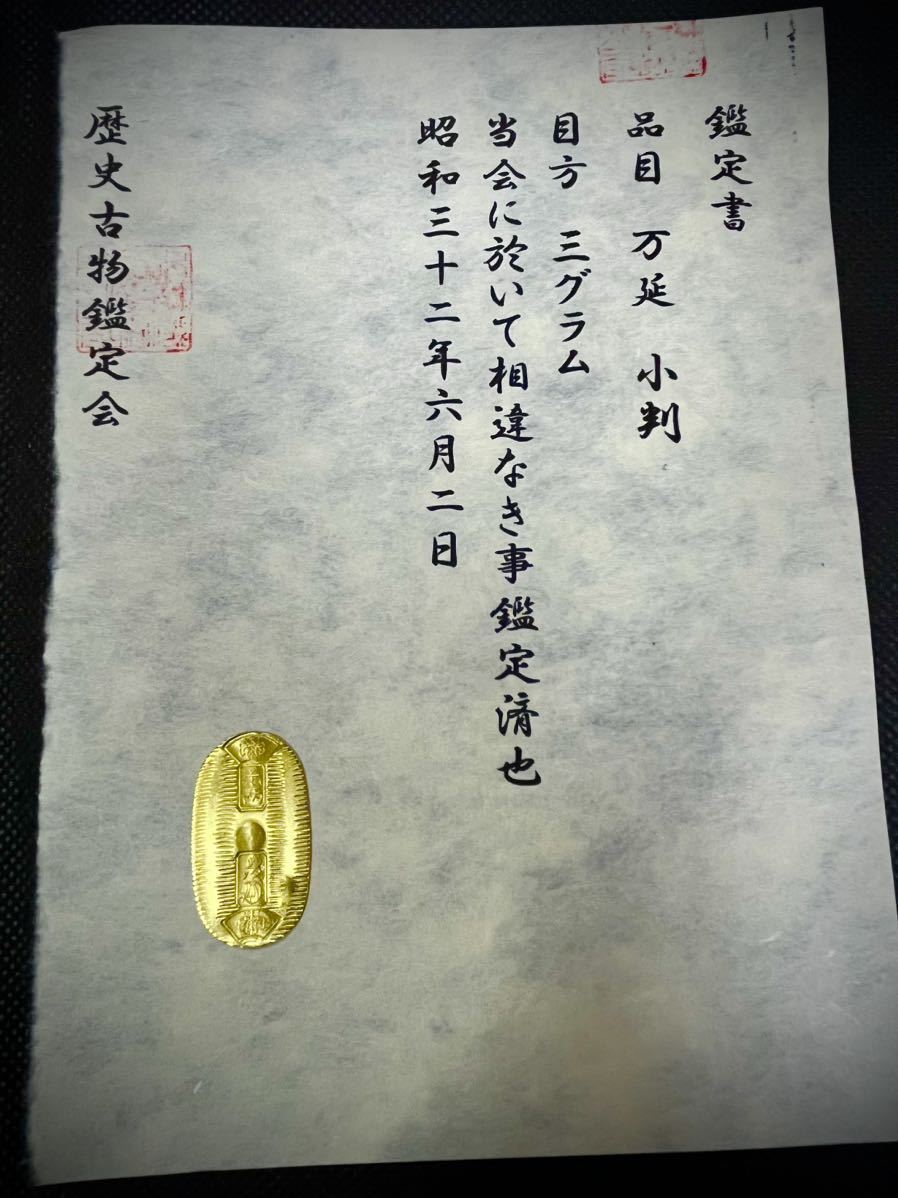 鑑定書
品目 万延 小判
目方 三グラム
当会に於いて相違なき事鑑定済也
昭和三十二年六月二日
歴史古物鑑定会